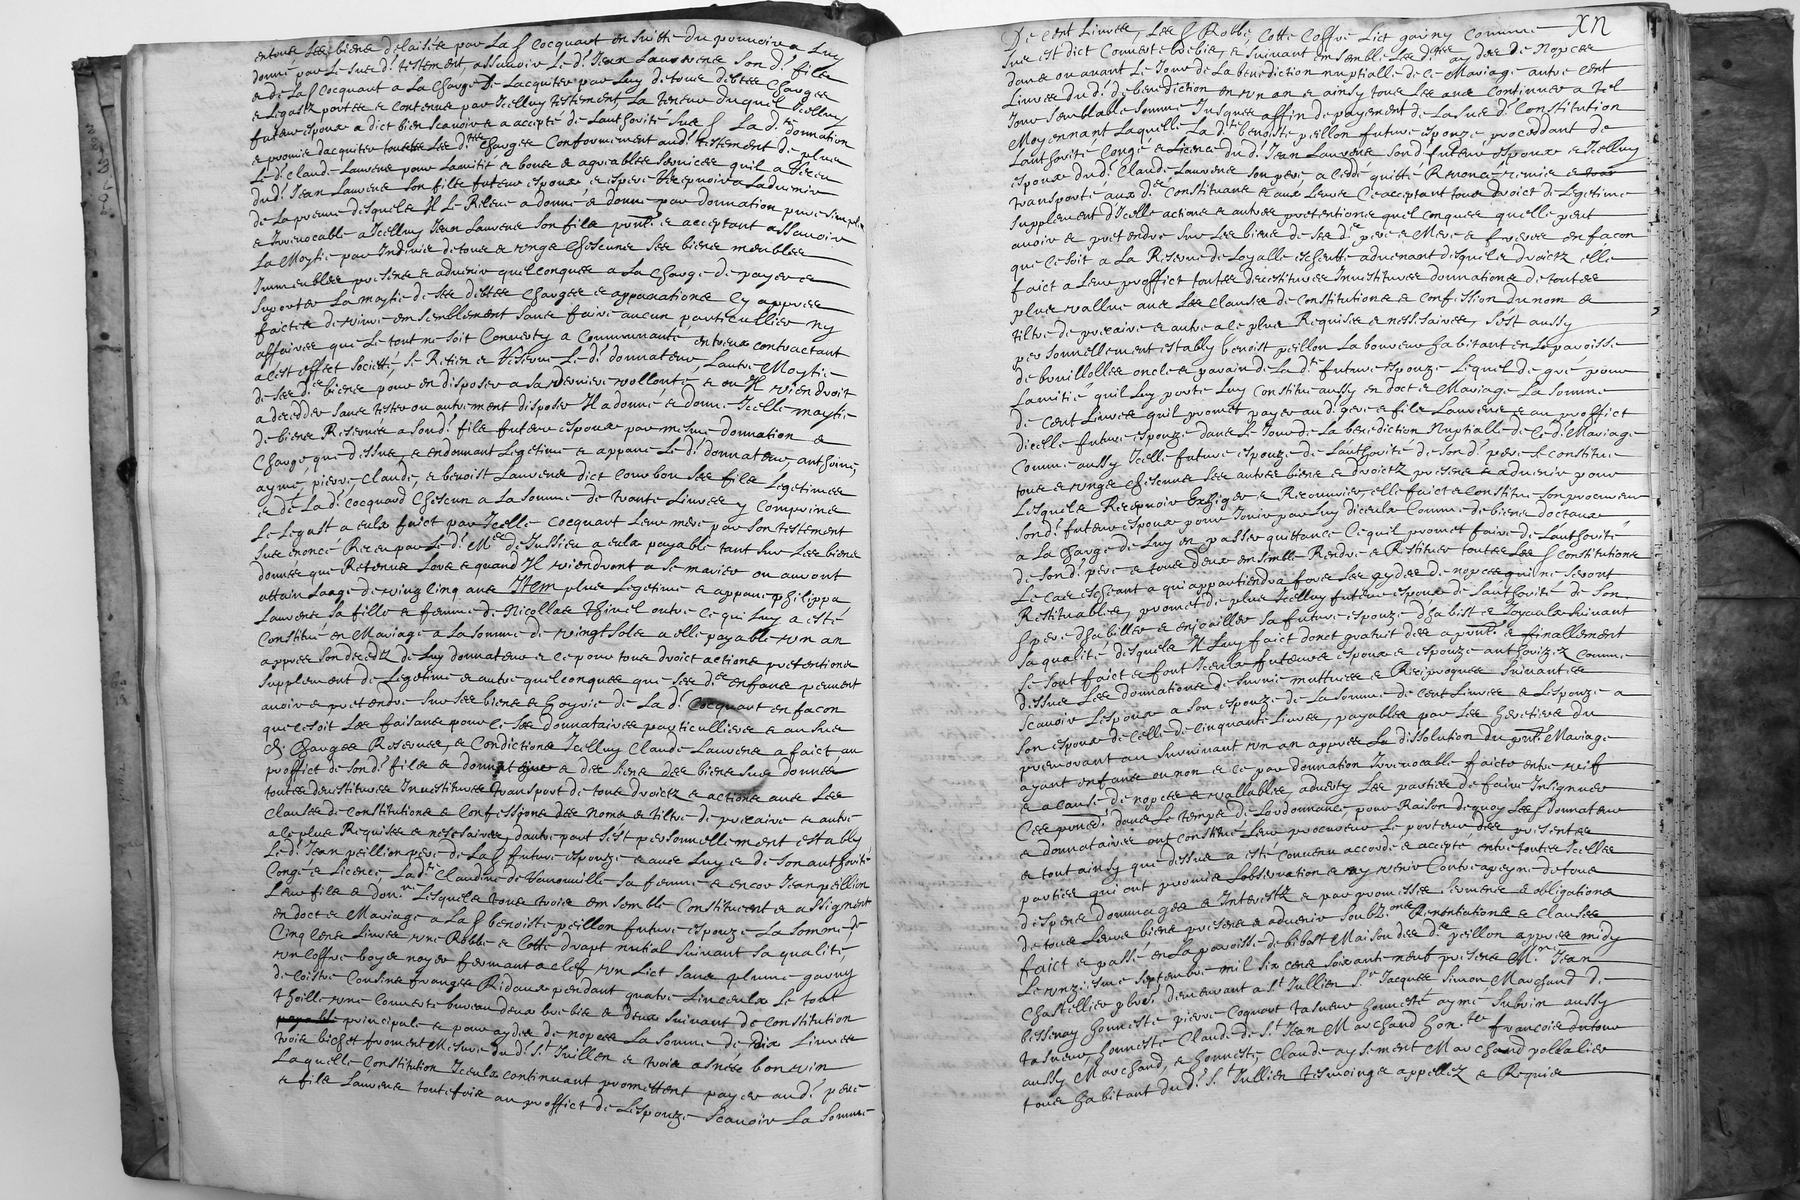 en tous ses biens delaissés par La S. Cocquart en suitte du pouvoir a Luy
donné par le susd. testement, assauoir le d. Jean Lauuerne son d. filz
e de La S. Cocquart a La Charge De Lacquiter par Luy de tous debtes Charges
e Legastz portés e Contenus par Icelluy testement La teneur duquel Icelluy
futeur espoux a dict bien scauoir e a accepté de Lauthorité sus S. La d.te donnation
e promis dacquiter touttes Les d.ttes Charges Conformement aud. testement de plus
Le d. Claude Lauuerne pour Lamitié e bons e agreables seruices quil a Receu
dud. Jean Lauuerne son filz futeur espoux, e espere Recepuoir a Laduenir
de La preuue desquels Il Le Releue a donné e donne par donnation pure simple
e Irreuocable a Icelluy Jean Lauuerne son filz pnt. e acceptant assauoir
La Moytié par Indiuis de tous e ungs Chescuns ses biens meubles
Immeubles presens e aduenir quelconques a La Charge de payer e
suporter La moytié de ses debtes Charges e appanations cy appres
faictes de viure emsemblement sans faire aucun particullier ny
affaires que Le tout ne soit Conuerty a Communauté entreux contractant
a cest effect societté, se Retien e Reserue Le d. donnateur, Lautre Moytié
de ses d. biens pour en disposer a sa derniere vollonté e ou Il viendroit
a decedder sans tester ou autrement disposer Il a donné e donne Icelle moytié
de biens Reseruée a son d. filz futeur espoux par mesme donnation e
Charge, que dessus, e endonnant Legetime e appane Le d. donnateur, anthoine,
aymé, pierre, Claude, e benoist Lauuerne dict Courbon ses filz Legetimes
e de La d. Cocquard Chescun a La somme de trante Liures y Comprins
Le Legast a eulx faict par Icelle Cocquart Leur mere par son testement
sus enoncé Receu par Le d. Me de Jussieu a eulx payable tant sur Les biens
donnés que Retenus Lors e quand Il viendront a se marier ou auront
attain Laage de vingt cinq ans Item plus Legetime e appane philippa
Lauuerne sa fille e femme de Nicollas Thivel outre ce qui Luy a esté
Constitué en Mariage a La somme de vingt sols a elle payable un an
appres son decedz de Luy donnateur e ce pour tous droict actions pretentions
supplement de Legetime e autre quelconques que ses d. enfans peuuent
auoir e pretendre sur ses biens e hoyrie de La d. Cocquart en facon
que ce soit Les faisans pour ce ses donnataires particulliers e au sur
Charges Reserues, e Condictions Icelluy Claude Lauuerne a faict au
proffict de son d. filz e donnataire e des siens des biens sus donnés
touttes deuestitures Inuestitures transport de tous droictz e actions aues Les
Clauses de Constitutions e Confessions des Noms e tiltre de precaire e autre
a ce plus Requises e necessaires, dautre part s'est personnellement estably
Le d. Jean peillion pere de La S. future espouze e aues Luy e de son authorité
Congé e Licence, La d.te Claudine de Vanouuille sa femme e encor Jean peillion
Leur filz e don.re Lesquels tous trois emsemble Constituent e assignent
en doct e Mariage a La S. benoiste peillon future espouze La somme de
Cinq Cens Liures, une Robbe e Cotte drapt nutial suiuant sa qualité,
un Coffre boys noyer fermant a Clef un Lict sans plume garny
de coistre Coussins frangés Ridaux pendant quatre Linceulx Le tout
thoille une Couuerte bureau deux brebis e deux suiuant de Constitution
payable principale e pour aydes de nopces La somme de dix Liures
trois bichet froment Mesure du d. St Jullien e trois asnées bon vin
Laquelle Constitution Iceulx continuant promettent payer aud. pere
e filz Lauuerne touttefois au proffict de Lespouze scauoir La somme
XII
De Cent Liures, Les S. Robbe, Cotte Coffre Lict garny Comme
sus est dict Couuerte brebis, e suiuant emsemble Les d.ttes aydes de Nopces
dans ou auant Le Jour de La benediction nuptialle de Ce Mariage autre Cent
Liures dud. de benediction en un an e ainsy tous Les ans Continuer a tel
Jour semblable somme Jusques affin de payement de La sus d. Constitution
Moyennant Laquelle La d.te benoiste peillon future espouze proceddant de
Lauthorité Congé e Licence du d. Jean Lauuerne son d. futeur espoux e Icelluy
espoux dud. Claude Lauuerne son pere a cedde quitté Renoncé remis e
transporté aux d. Constituans e aux Leurs Ce acceptant tous droict de Legetime
supplement d'Icelle actions e autres pretentions quelconques quelle peut
auoir e pretendre sur Les biens de ses d. pere e Mere e freres en facon
que Ce soit a La Reserue de Loyalle escheutte aduenant desquels droictz elle
faict a Leur proffict touttes deuestitures Inuestitures donnations de touttes
plus vallue aues Les Clauses de Constitutions e Confession du nom e
tiltre de precaire e autre a ce plus Requises e nessessaires, s'est aussy
personnellement estably benoist peillon Laboureur habitant en La parroisse
de brullolles oncle e parain de La d.te future espouze Lequel de gré pour
Lamitié quil Luy porte Luy Constitue aussy en doct e Mariage La somme
de Cent Liures quil promet payer au d. pere e filz Lauuerne e au proffict
dicelle future espouze dans Le Jour de La benediction Nuptialle de ce d. Mariage
Comme aussy Icelle future espouze de Lauthorité de son d. pere se Constitue
tous e ungs chescuns ses autres biens e droictz presens e aduenir pour
Lesquels Recepuoir Exhiger e Recouurer, elle faict e Constitue son procureur
son d. futeur espoux pour Jouir par Luy diceulx Comme de biens doctaux
a La Charge de Luy en passer quittance Ce quil promet faire de Lauthorité
de son d. pere e tous deux ensemble Rendre e Restituer touttes Les S. Constitutions
Le cas escheant a qui appartiendra fors Les aydes de nopces qui ne seront
Restituables, promet de plus Icelluy futeur espoux de Lauthorité de son
S. pere dhabiller e enjoailler sa future espouze dhabist e Joyaulx suiuant
sa qualité desquels Il Luy faict donct gratuit des a pnt. e finallement
se sont faict e font Iceulx futeurs espoux e espouze authorizez comme
dessus Les donnations de suruie mutuelles e Reciproques suiuantes
scauoir Lespoux a son espouze de La somme de Cent Liures e Lespouze a
son espoux de Celle de Cinquante Liures, payables par Les heretiers du
premourant au suruiuant un an appres La dissolution du pnt. Mariage
ayant enfans ou non e ce par donnation Irreuocable faicte entre vifz
e a cause de nopces e vallables, aduerty Les parties de faire Insignuer
Ces pntes. dans Le temps de Lordonnance, pour Raison de quoy Les S. donnateur
e donnataires ont Constitué Leur procureur Le porteur des presentes
e tout ainsy que dessus a esté conuenu accordé e accepté entre touttes Icelles
parties qui ont promis Lobseruation e ny venir Contre a peyne de tous
despens dommages e Interestz e par promesses sermens e obligations
de tous Leurs biens presens e aduenir soubz.ons Renontiations e Clauses
faict e passé en La parroisse de bibost Maison des d. peillon appres midy
Le unziesme septembre mil six cens soixante neuf presens Me. Jean
Chastellier pbre. demeurant a St Jullien Sr Jacques Simon Marchand de
bessenay honneste pierre Coquart tasseur honneste aymé Subrin aussy
tasseur honneste Claude de St Jean Marchand hon.te francois dutour
aussy Marchand, e honneste Claude aysement Marchand pollalier
tous habitant du d. St Jullien tesmoings appellez e Requis